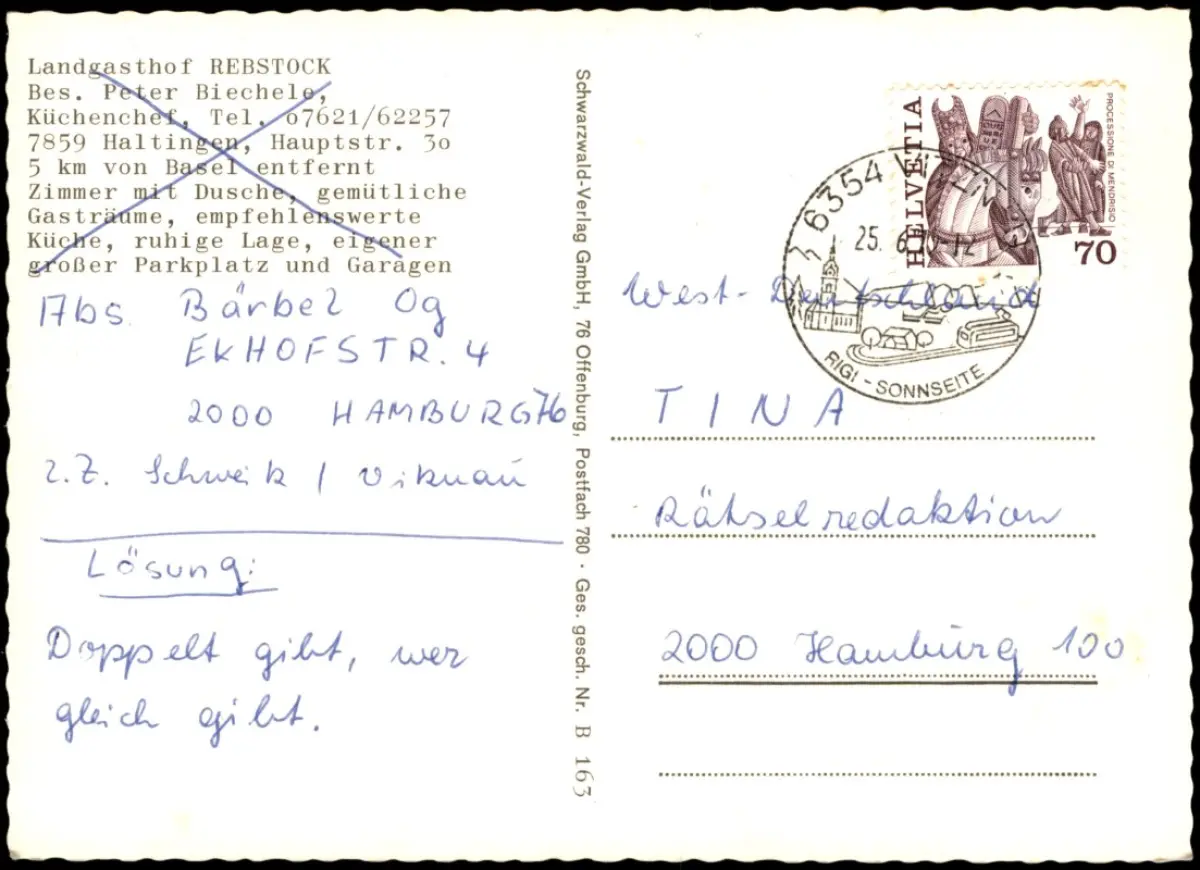 Landgasthof REBSTOCK
Bes. Peter Biechele,
Küchenchef, Tel. o7621/62257
7859 Haltingen, Hauptstr. 3o
5 km von Basel entfernt
Zimmer mit Dusche, gemütliche
Gasträume, empfehlenswerte
Küche, ruhige Lage, eigener
großer Parkplatz und Garagen
Abs. Bärbel Og
EKHOFSTR. 4
2000 HAMBURG 76
z.Z. Schweik / Viknau
Lösung:
Doppelt gibt, wer
gleich gibt.
Schwarzwald-Verlag GmbH, 76 Offenburg, Postfach 780 · Ges. gesch. Nr. B 163
HELVETIA
PROCESSIONE DI MENDRISIO
70
6354
25.
RIGI - SONNSEITE
West-Deutschland
TINA
Rätselredaktion
2000 Hamburg 100